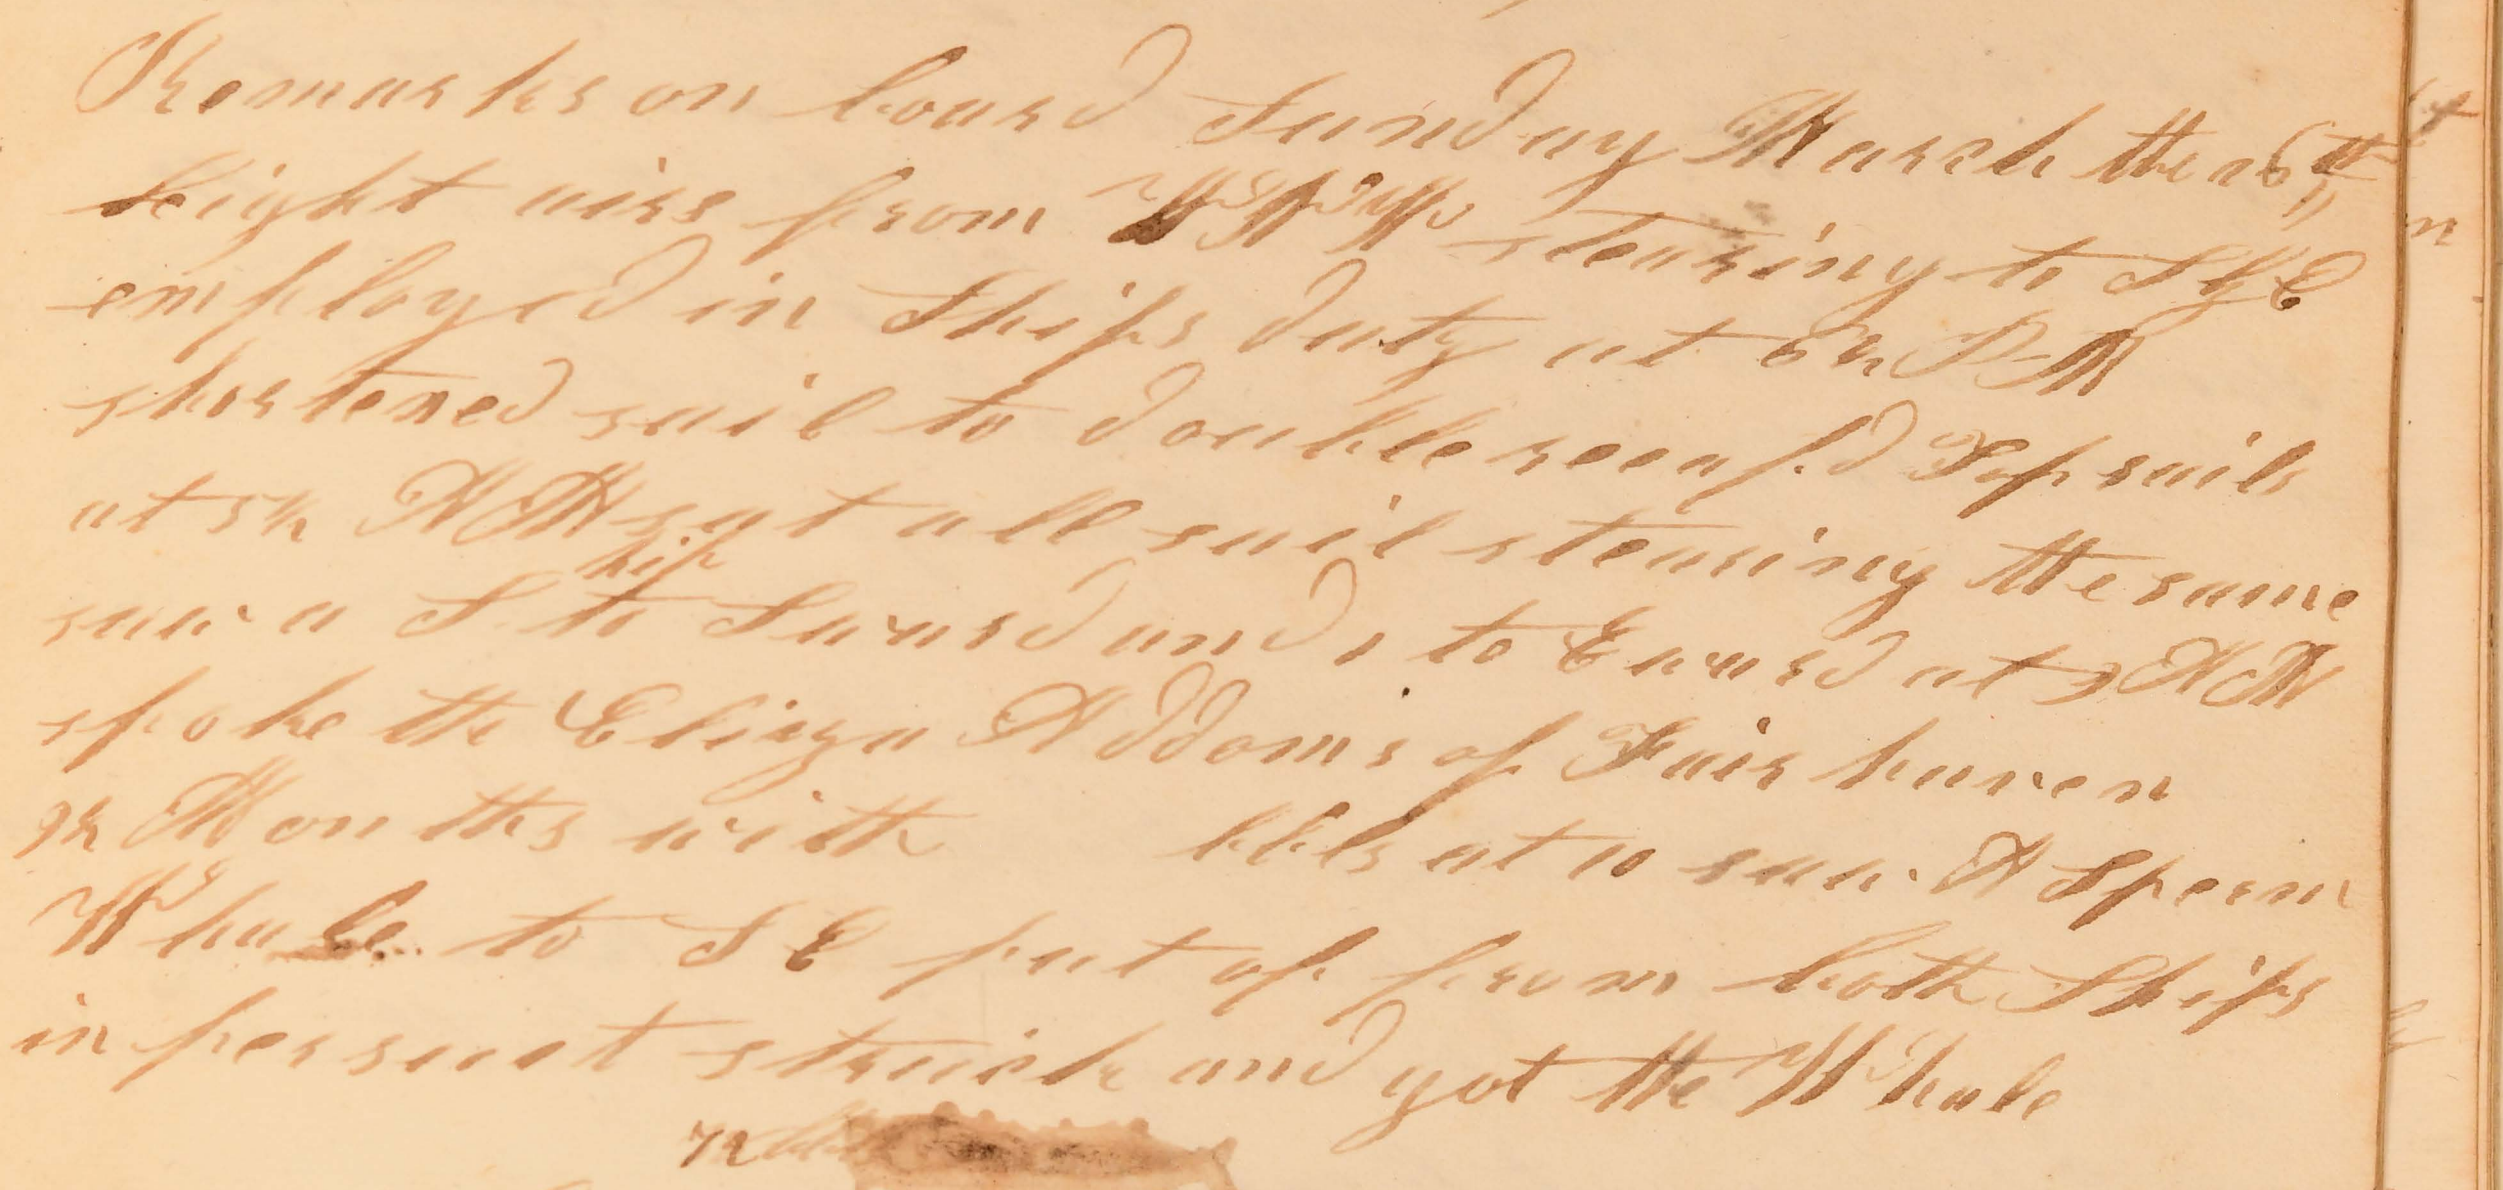 Remarks on board Sunday March the 26th
Light airs from WNW stearing to SbE
employed in Ships duty at 6h PM
shortened sail to double reeaf.d Topsails
at 5h AM syt all sail stearing the same
saw a Ship to Sward and 1 to Eward at 9 AM
spoke the Eliza Addoms of Fair haven
9h Months with bbls at 10 saw A Sperm
Whale to SE put of from both Ships
in persuat struck and got the Whale